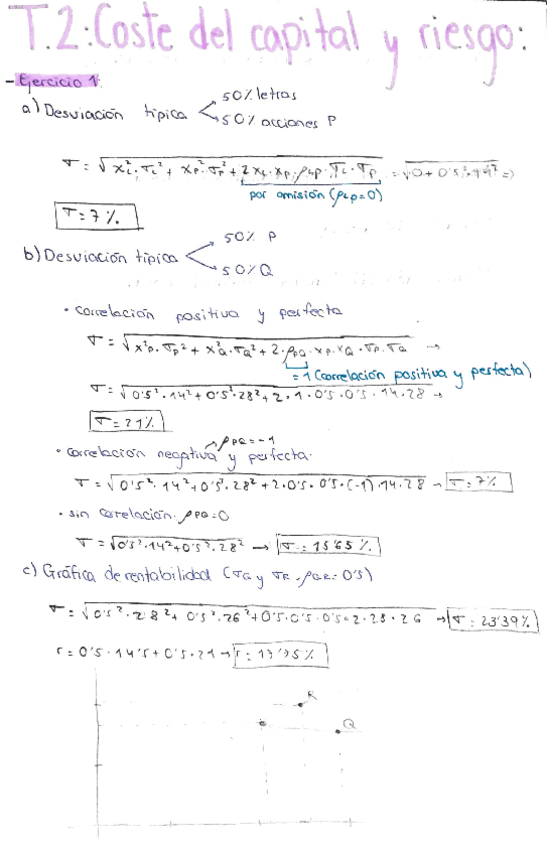 T.2: Coste del capital y riesgo:
- Ejercicio 1:
a) Desviación típica < 50% letras
50% acciones P
σ = √(x²L · σL² + xP² · σP² + 2xL · xP · ρLP · σL · σP) = √(0 + 0'5² · 14²) =>
por omisión (ρLP = 0)
σ = 7%.
b) Desviación típica < 50% P
50% Q
• correlación positiva y perfecta
σ = √(x²P · σP² + x²Q · σQ² + 2 · ρPQ · xP · xQ · σP · σQ) →
= 1 (correlación positiva y perfecta)
σ = √(0'5² · 14² + 0'5² · 28² + 2 · 1 · 0'5 · 0'5 · 14 · 28) →
σ = 21%
ρPQ = -1
• correlación negativa y perfecta.
σ = √(0'5² · 14² + 0'5² · 28² + 2 · 0'5 · 0'5 · (-1) · 14 · 28) → σ = 7%
• sin correlación. ρPQ = 0
σ = √(0'5² · 14² + 0'5² · 28²) → σ = 15'65%.
c) Gráfica de rentabilidad (σQ y σR. ρQR = 0'5)
σ = √(0'5² · 28² + 0'5² · 26² + 0'5 · 0'5 · 0'5 · 2 · 28 · 26) → σ = 23'39%
r = 0'5 · 14'5 + 0'5 · 21 →
R
Q